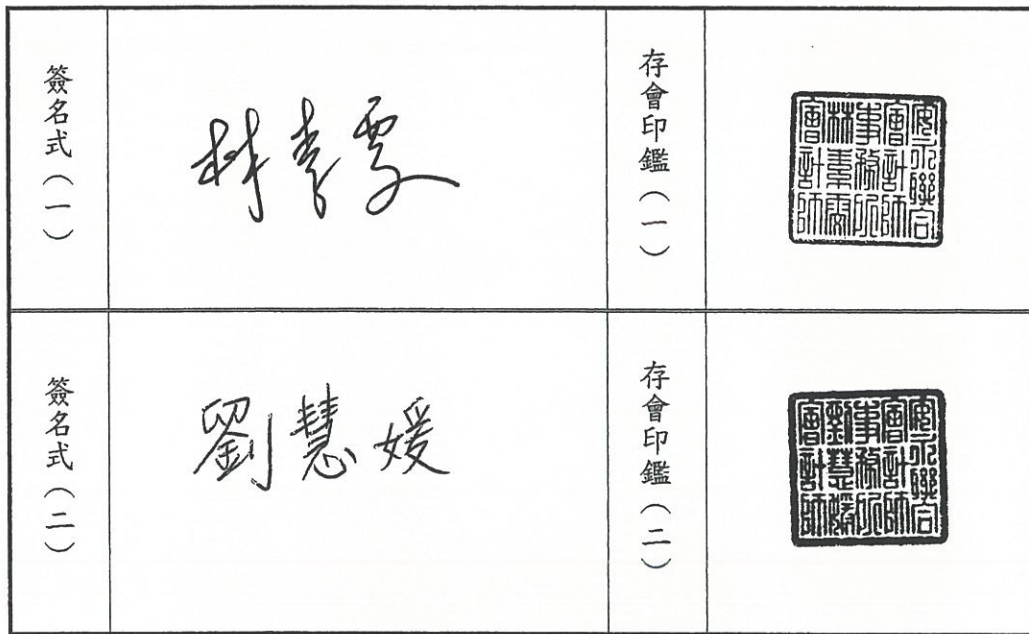 簽名式(一)
林素雯
存會印鑑(一)
安永聯合
會計師
事務所
林素雯
會計師
簽名式(二)
劉慧媛
存會印鑑(二)
安永聯合
會計師
事務所
劉慧媛
會計師